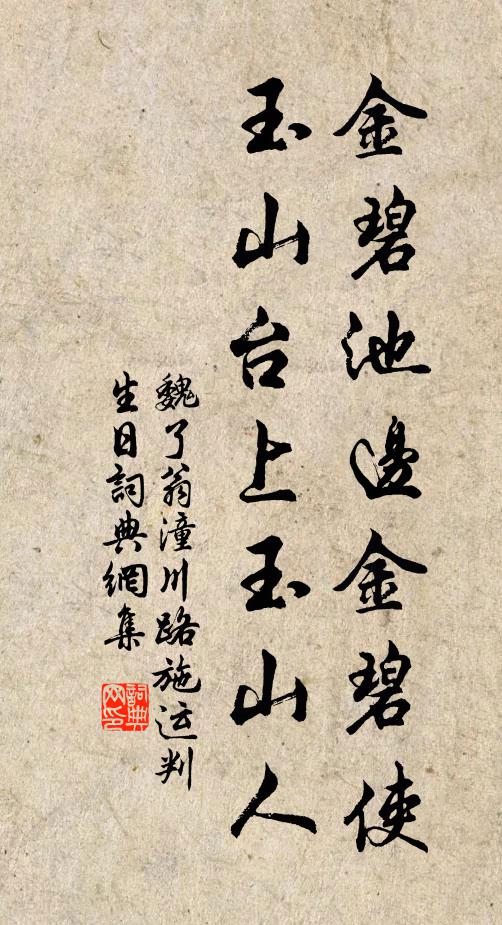 金碧池邊金碧使
玉山台上玉山人
魏了翁潼川路施运判
生日詞典網集
詞典网印